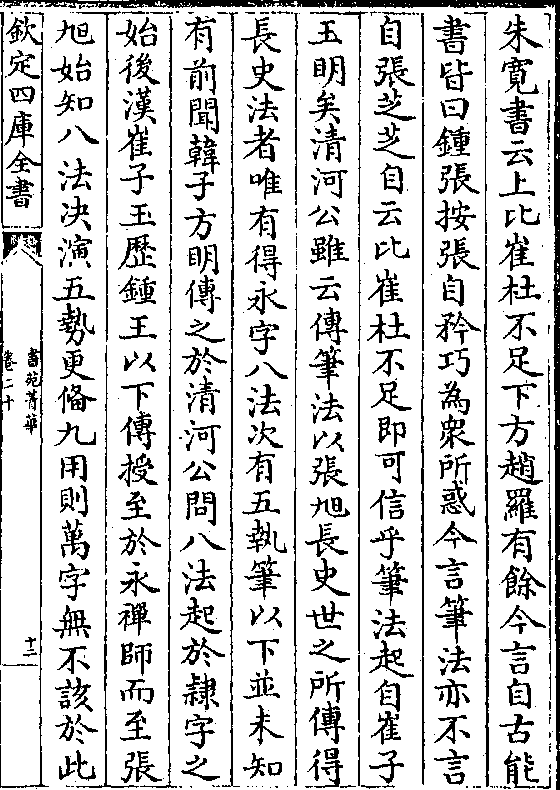 朱寛書云上比崔杜不足下方趙羅有餘今言自古能
書皆曰鍾張按張自矜巧為衆所惑今言筆法亦不言
自張芝芝自云比崔杜不足即可信乎筆法起自崔子
玉明矣清河公雖云傳筆法以張旭長史世之所傳得
長史法者唯有得永字八法次有五執筆以下並未知
有前聞韓子方明傳之於清河公問八法起於隷字之
始後漢崔子玉歴鍾王以下傳授至於永禪師而至張
旭始知八法決演五勢更備九用則萬字無不該於此
欽定四庫全書
書苑菁華
卷二十
十三